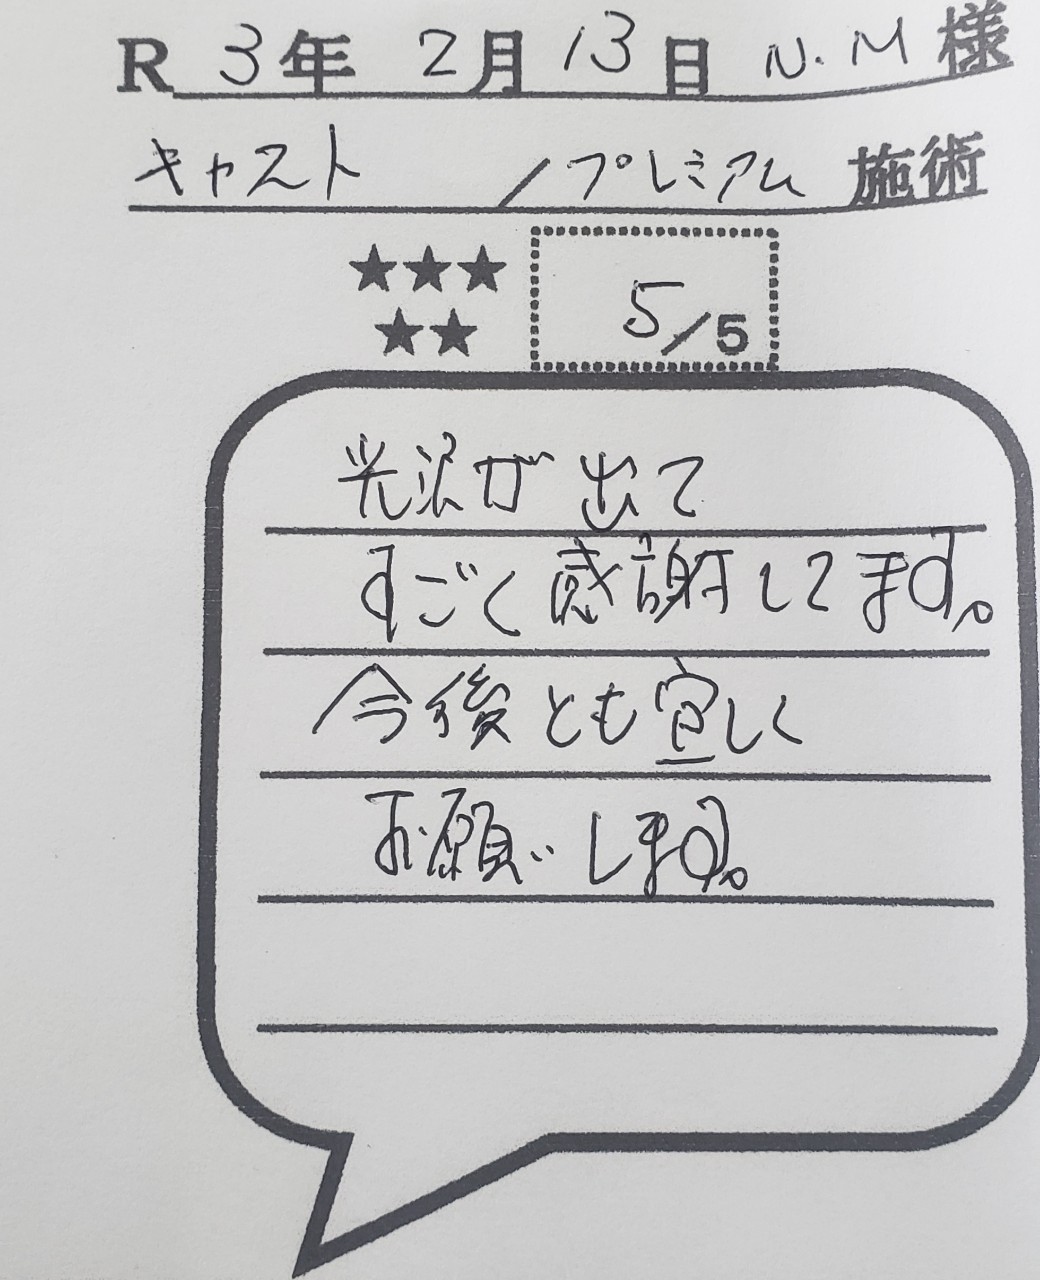 R 3年 2月 13日 N.M 様
キャスト / プレミアム 施術
★★★
★★
5/5
光沢が出て
すごく感謝してます。
今後とも宜しく
お願いします。